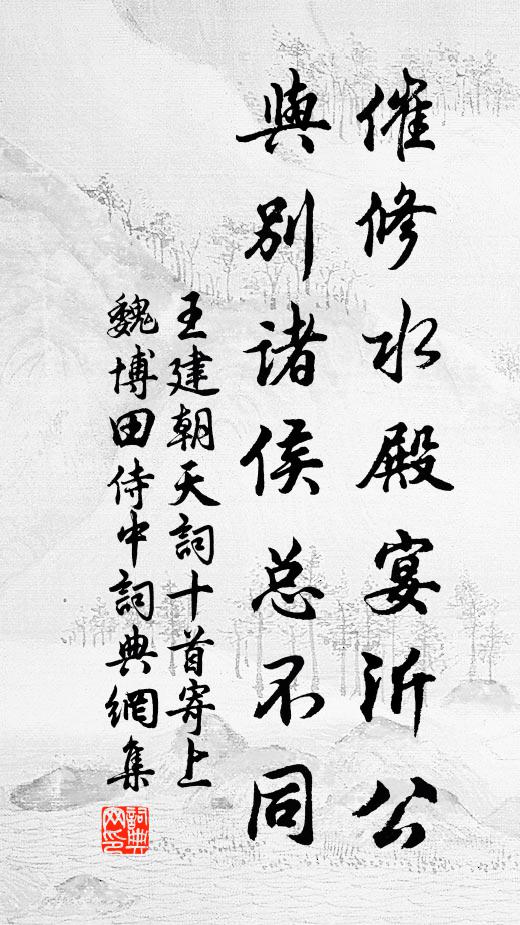 催修水殿宴沂公
與別諸侯总不同
王建朝天詞十首寄上
魏博田侍中詞典網集
詞典网印